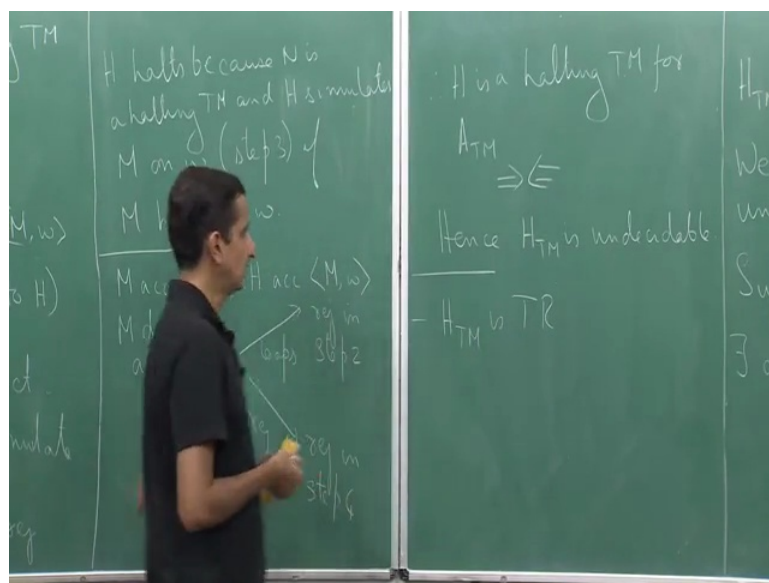 TM
M, w⟩
to H)
ct.
mulate
rej
H halts because N is
a halting TM and H simulates
M on w (step 3) if
M w.
M acc H acc ⟨M, w⟩
M
rej in
loops step 2
rej in
step 4
∴ H is a halting TM for
A_TM
⇒⇐
Hence H_TM is undecidable.
- H_TM is TR
H_TM
We
un
Su
∃